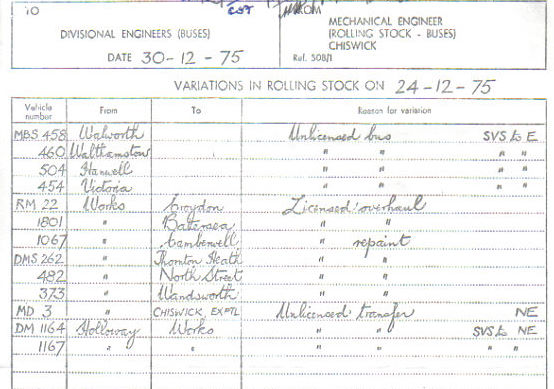 TO
FROM
DIVISIONAL ENGINEERS (BUSES)
MECHANICAL ENGINEER
(ROLLING STOCK - BUSES)
CHISWICK
DATE 30-12-75
Ref. 508/1
VARIATIONS IN ROLLING STOCK ON 24-12-75
Vehicle number From To Reason for variation
MBS 458 Walworth Unlicensed bus SVS to E
460 Walthamstow " " " "
504 Hanwell " " " "
454 Victoria " " " "
RM 22 Works Croydon Licensed overhaul
1801 " Battersea " "
1067 " Camberwell " repaint
DMS 262 " Thornton Heath " "
482 " North Street " "
373 " Wandsworth " "
MD 3 CHISWICK, EXPTL Unlicensed transfer NE
DM 1164 Holloway Works " " SVS to NE
1167 " " " " " "